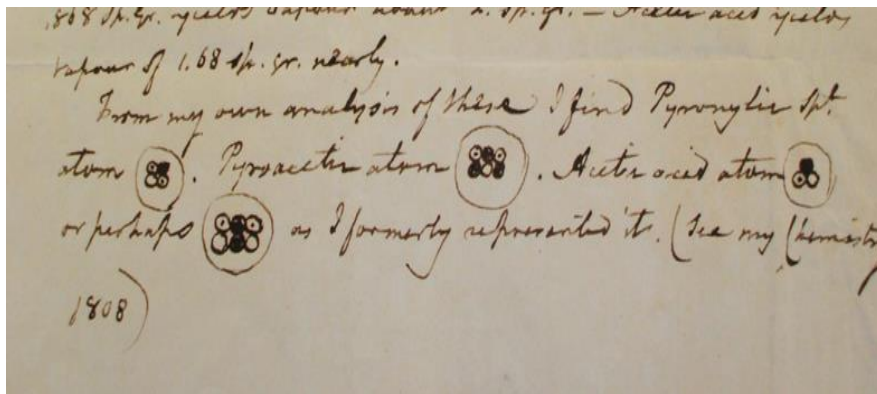 .868 Sp. Gr. yields vapour about 2. Sp. gr. — Acetic acid yields
vapour of 1.68 sp. gr. nearly.
From my own analysis of these I find Pyroxylic Spt.
atom . Pyroacetic atom . Acetic acid atom
or perhaps as I formerly represented it. (See my Chemistry
1808)